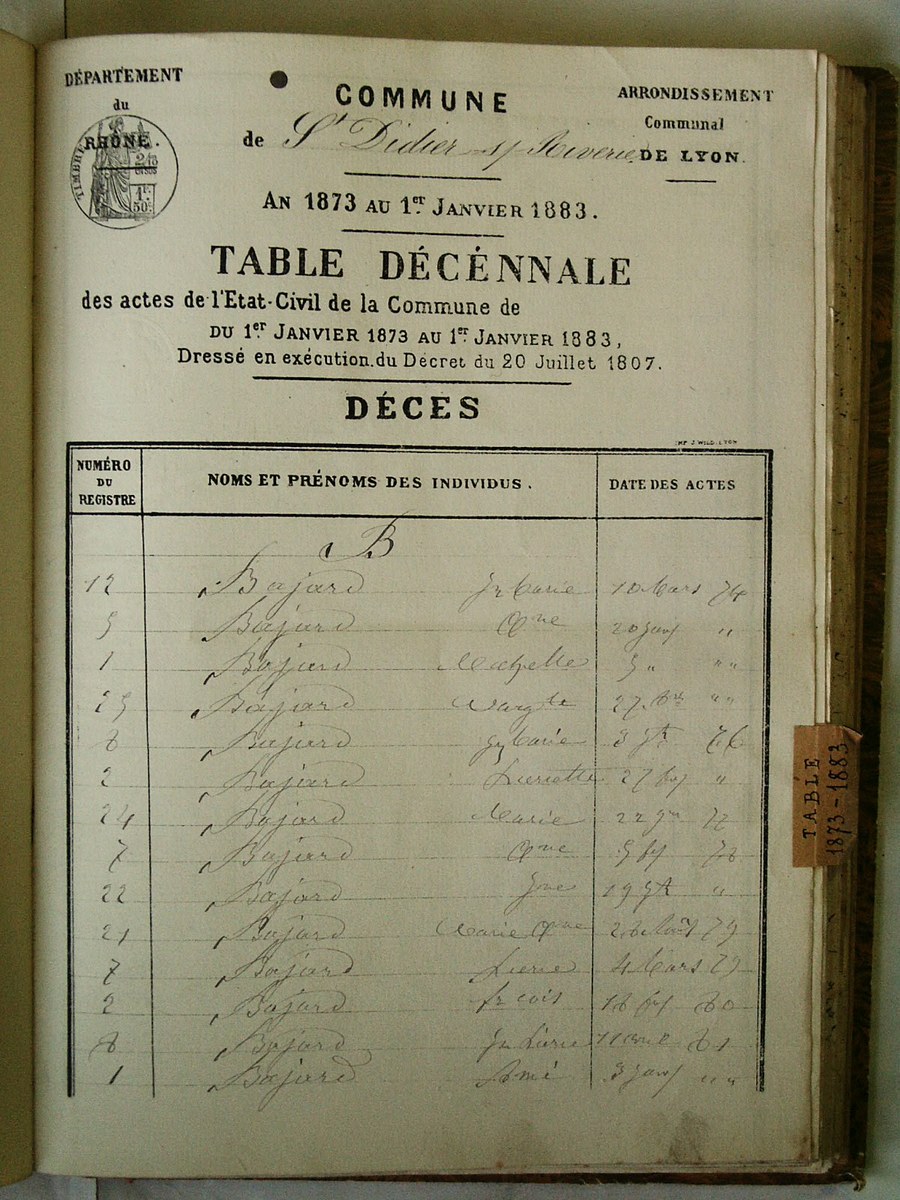 DÉPARTEMENT
du
RHÔNE.
TIMBRE
COMMUNE
de St Didier s/ Riverie
ARRONDISSEMENT
Communal
DE LYON.
AN 1873 AU 1er JANVIER 1883.
TABLE DÉCÉNNALE
des actes de l'Etat-Civil de la Commune de
DU 1er JANVIER 1873 AU 1er JANVIER 1883,
Dressé en exécution du Décret du 20 Juillet 1807.
DÉCES
IMP J. WILD. LYON
NUMÉRO DU REGISTRE NOMS ET PRÉNOMS DES INDIVIDUS. DATE DES ACTES
B
12 Bajard Jn Marie 10 Mars 74
5 Bajard 20 janv "
1 Bajard 5 " " "
25 Bajard Margte " "
8 Bajard Marie 76
2 Bajard Pierrette 27 "
24 Bajard Marie 22 77
7 Bajard 78
22 Bajard 19 "
21 Bajard Marie 79
7 Bajard Pierre 4 Mars 79
2 Bajard frcois 80
8 Bajard Jn Pierre 81
1 Bajard Amé 3 janv " "
TABLE
1873-1883